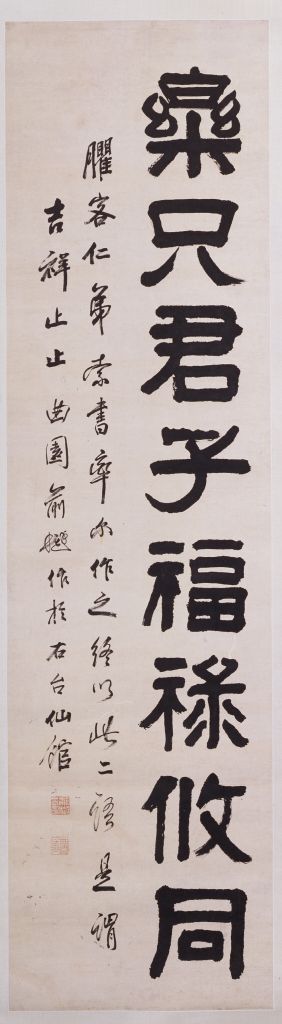 樂只君子福祿攸同
臞客仁弟索書率尒作之終以此二語是謂
吉祥止止曲園俞樾作於右台仙館